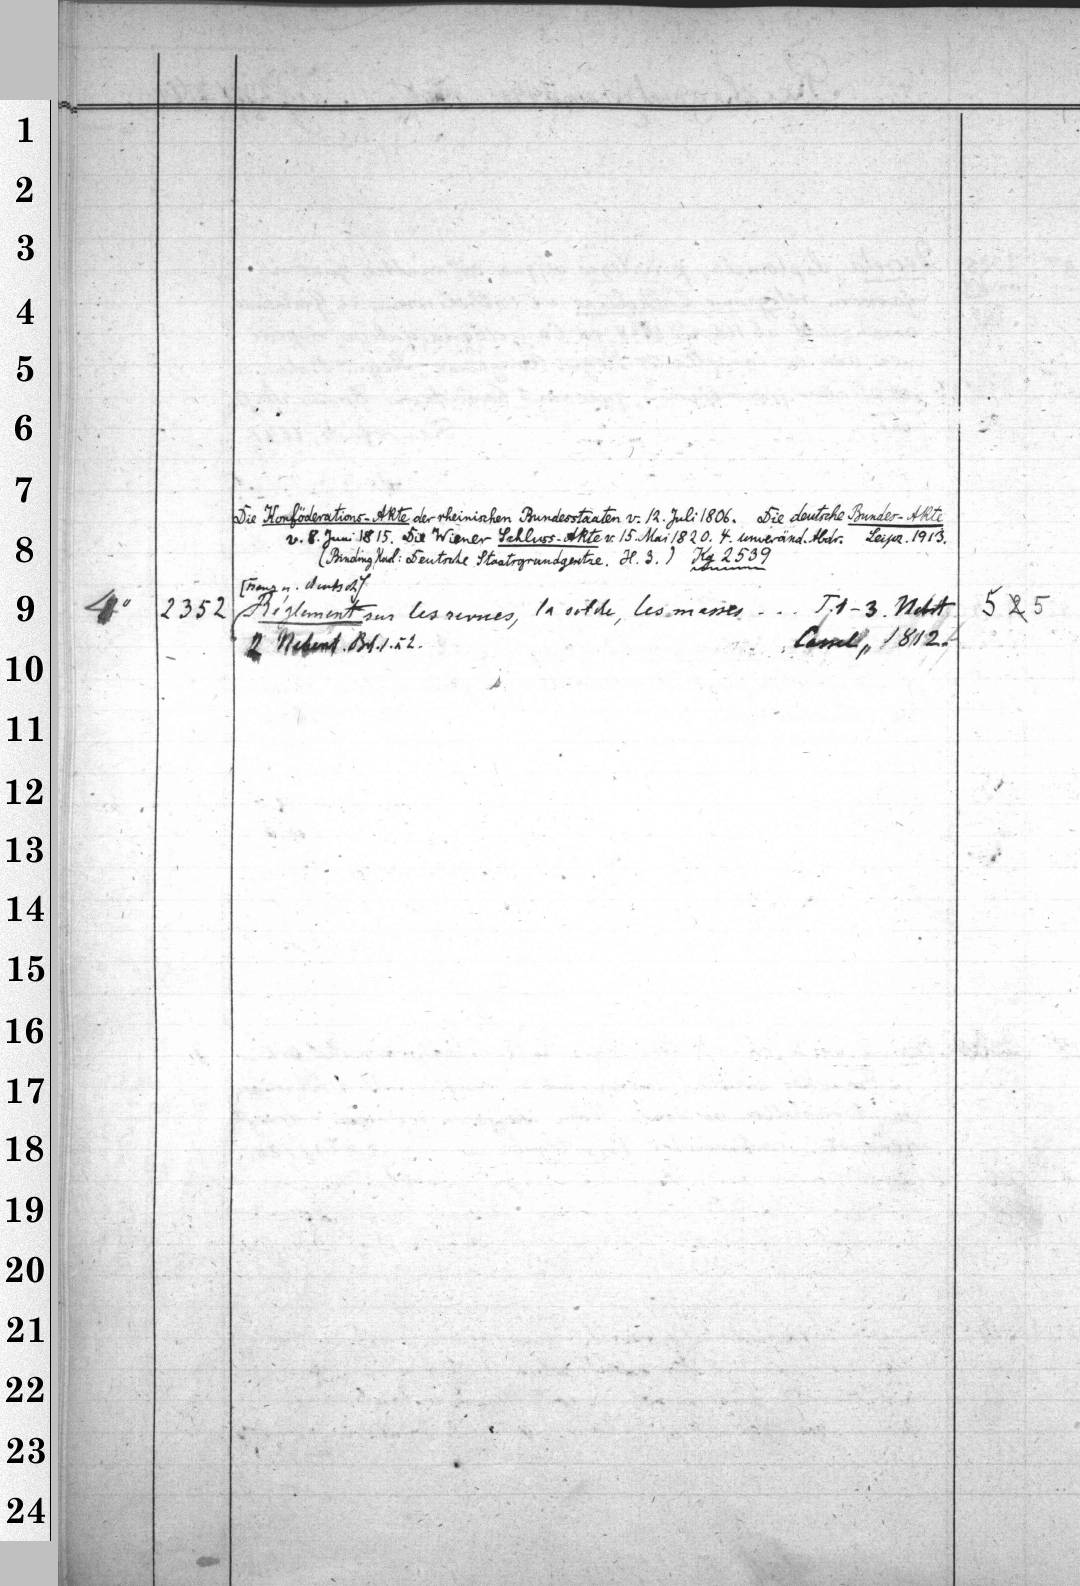 1
2
3
4
5
6
7
Die Konföderations-Akte der rheinischen Bundesstaaten v. 12. Juli 1806. Die deutsche Bundes-Akte
8
v. 8. Juni 1815. Die Wiener Schluss-Akte v. 15. Mai 1820. 4. unveränd. Abdr. Leipz. 1913.
(Binding, Karl: Deutsche Staatsgrundgesetze. H. 3.) Kg 2539
[Franz. u. deutsch]
9
4° 2352 Règlement sur les revues, la solde, les masses ... T. 1-3. Nebst 5 2 5
2 Nebent. Bd. 1. u. 2. Cassel, 1812.
10
11
12
13
14
15
16
17
18
19
20
21
22
23
24